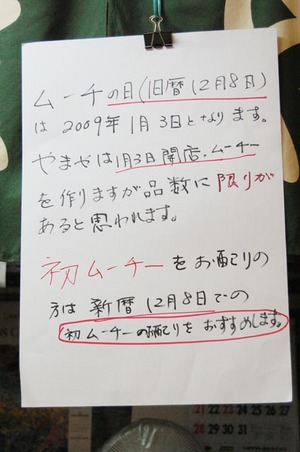 ムーチーの日(旧暦12月8日)
は2009年1月3日となります。
やまやは1月3日開店、ムーチー
を作りますが品数に限りが
あると思われます。
初ムーチーをお配りの
方は新暦12月8日での
初ムーチーの配りをおすすめします。
21 22 23 24 25 26 27
28 29 30 31